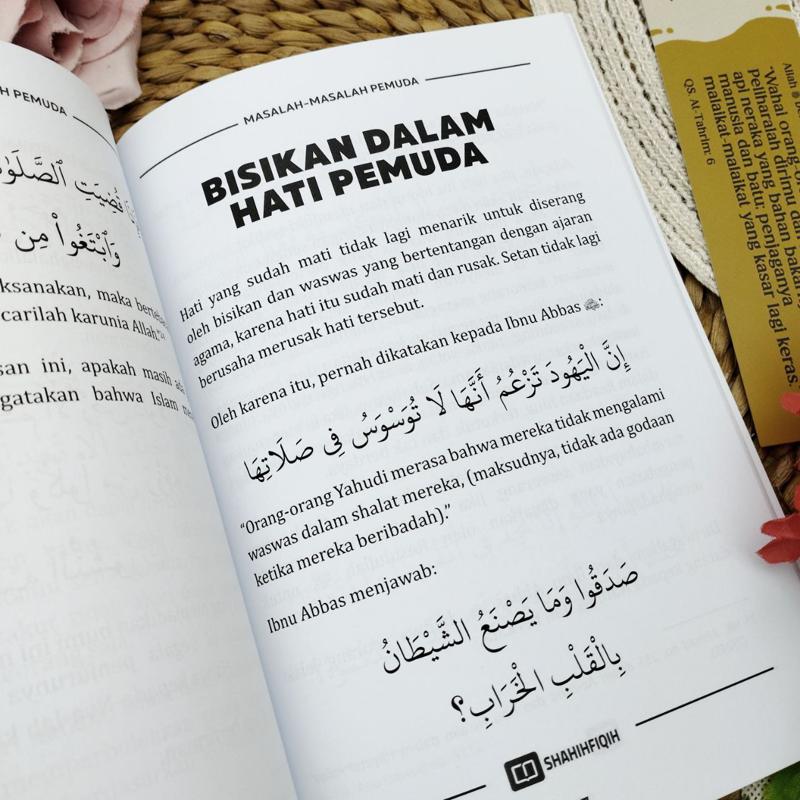 PEMUDA
قُضِيَتِ ٱلصَّلَوٰ
وَٱبْتَغُوا۟ مِن
ksanakan, maka
carilah karunia Allah."
san ini, apakah masih
gatakan bahwa Islam
MASALAH-MASALAH PEMUDA
BISIKAN DALAM
HATI PEMUDA
Hati yang sudah mati tidak lagi menarik untuk diserang
oleh bisikan dan waswas yang bertentangan dengan ajaran
agama, karena hati itu sudah mati dan rusak. Setan tidak lagi
berusaha merusak hati tersebut.
Oleh karena itu, pernah dikatakan kepada Ibnu Abbas :
إِنَّ الْيَهُودَ تَزْعُمُ أَنَّهَا لَا تُوَسْوَسُ فِي صَلَاتِهَا
“Orang-orang Yahudi merasa bahwa mereka tidak mengalami
waswas dalam shalat mereka, (maksudnya, tidak ada godaan
ketika mereka beribadah).”
Ibnu Abbas menjawab:
صَدَقُوا وَمَا يَصْنَعُ الشَّيْطَانُ
بِالْقَلْبِ الْخَرَابِ؟
SHAHIHFIQIH
"Wahai orang-
peliharalah dirimu dan
api neraka yang bahan bakar
manusia dan batu; penjaganya
malaikat-malaikat yang kasar lagi keras.
QS. At-Tahrim: 6